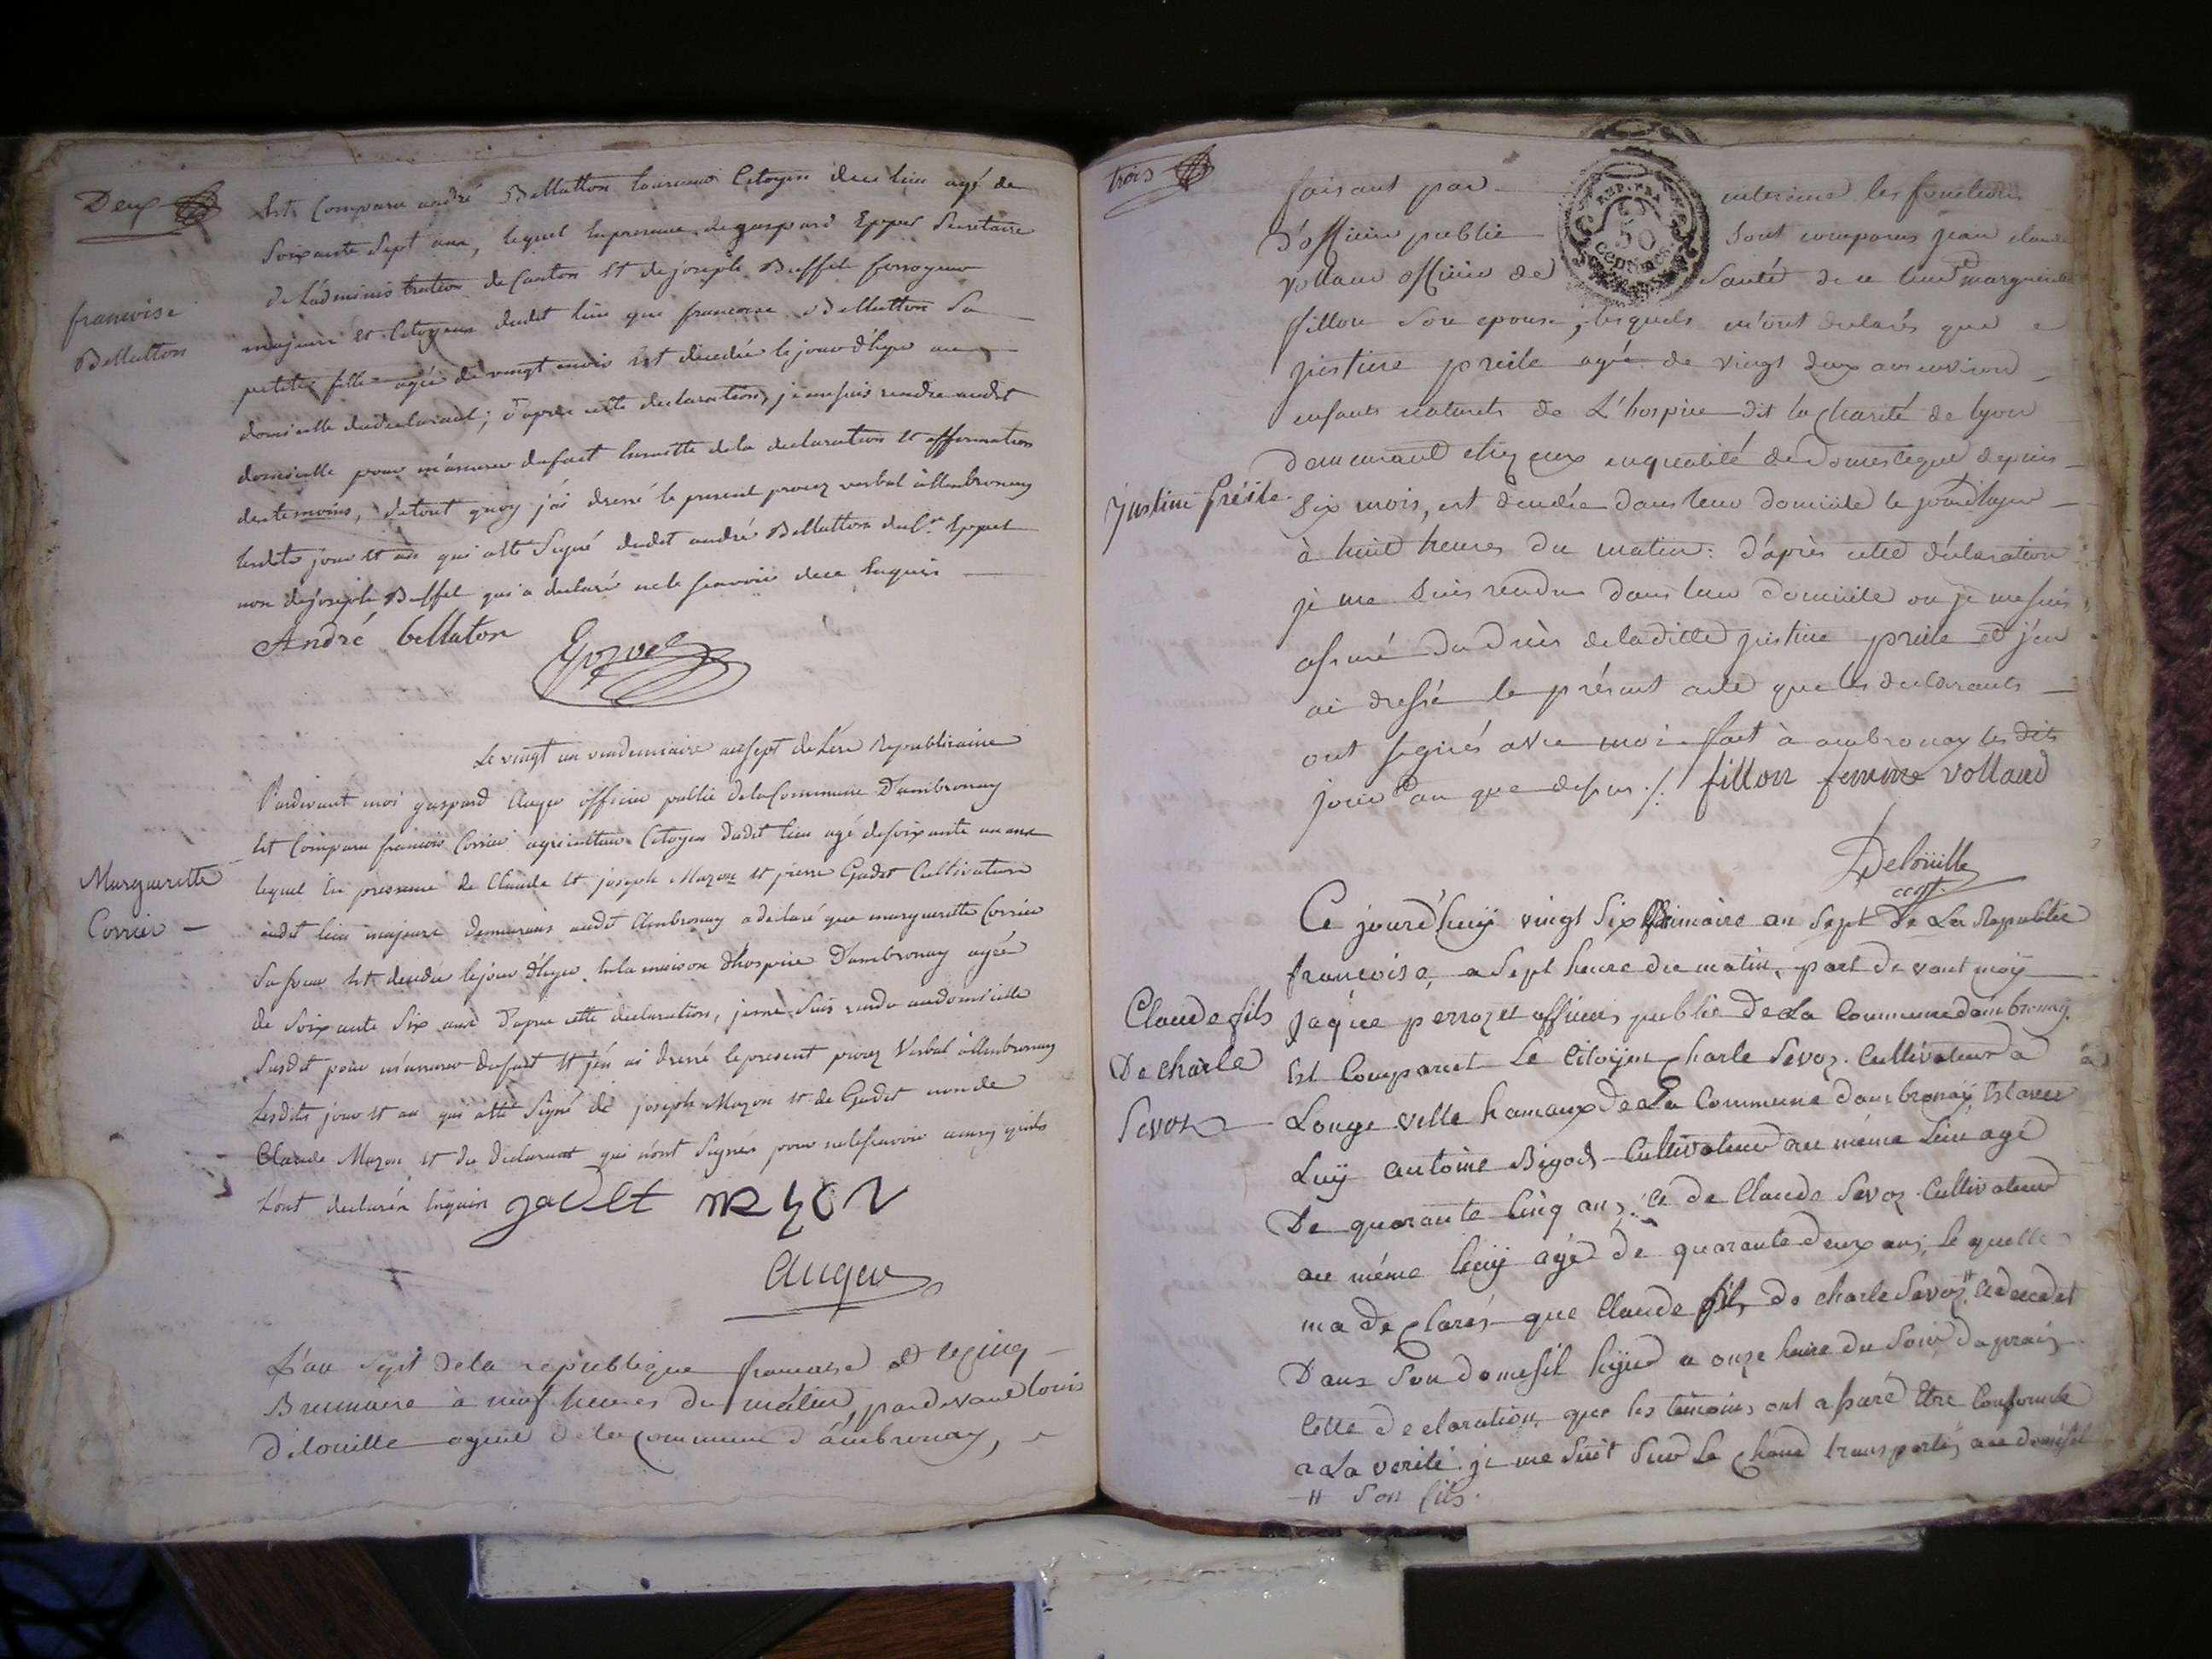 Deux
Est Comparu andré Bellatton Citoyen dece lieu agé de
Soixante Sept ans, lequel En presence de gaspard Eppuel Secretaire
de Ladministration de Canton et de joseph Buffet
francoise
Bellatton
majeurs et Citoyens dudit lieu que francoise Bellatton Sa
petite fille agée de vingt mois Est decedée le jour d'hyer au
domicille du declarant; d'apres cette declaration, je me suis rendu audit
domicille pour m'assurer du fait Ensuitte dela declaration et affirmation
des temoins, de tout quoy j'ai dressé le present procez verbal à Ambronay
Lesdits jour et an qui a été Signé dudit andré Bellatton du Cn Eppuel
non de joseph Buffet qui a declaré ne le scavoir dece Enquis
André bellaton
Le vingt un vendemiaire an sept de L'ere Republicaine
Pardevant moi gaspard Auger officier public dela Commune D'ambronay
Est Comparu francois Corrier agriculteur Citoyen dudit lieu agé de soixante un ans
Margueritte
Corrier
lequel En presence de Claude et joseph Mazon et pierre Gadet Cultivateurs
audit lieu majeurs demeurans audit Ambronay a declaré que marguerite Corrier
Sa soeur Est decedée le jour d'hyer En la maison d'hospice D'ambronay agée
de Soixante Six ans d'apres cette declaration, je me Suis rendu au domicille
Susdit pour m'assurer du fait et j'en ai dressé le present procez Verbal à Ambronay
Lesdits jour et an qui a été Signé de joseph Mazon et de Gadet non de
Claude Mazon et du declarant qui n'ont Signés pour ne le scavoir ainsy qu'ils
L'ont declarés Enquis gadet mazon
Auger
L'an sept de la republique francaise et le cinq
Brumaire à neuf heures du matin, pardevant louis
Delouille agent de la commune d'ambronay,
trois
faisant par interime les fonctions
REP. FRA.
50
centimes
d'officier public Sont comparus jean claude
volland officier de Santé de ce lieu et marguerite
fillon son epouse, lesquels m'ont declarés que
justine preile agée de vingt deux ans environ
enfants naturels de L'hospice dit la charité de lyon
demeurant chez eux en qualité de Domestique depuis
Justine préile
six mois, est decedée dans leur domicile le jour d'hyer
à huit heures du matin: d'après cette déclaration
je me suis rendu dans leur domicile ou je me suis
assuré du décès de la ditte justine preile et j'en
ai dressé le présent acte que les declarants
ont signés avec moi fait à ambronay les dits
jour et an que dessus ./. fillon femme volland
Delouille
agt.
Ce jourd'huÿ vingt six frimaire an sept de La Republic
francoise, a sept heure du matin, part devant moÿ
Claude fils
De charle
Sevoz
Jaque perrozet officier public De La Commune d'ambronay.
Est Comparut Le Citoÿen Charle Sevoz Cultivateur a
Longe ville hamaux De La Commune dambronaÿ Est avec
Luÿ antoine Bigod Cultivateur au même Lieu agé
De quarante Cinq ans, et de Claude Sevoz Cultivateur
au même lieuÿ agé de quarante deux ans, Lequelle
ma declarés que Claude fils de charle Sevoz # a decedet
Dans Son domesil hÿer a onze heure du soir daprais
Cette declaration que les temoins ont assuré Etre Conforme
a La verité. je me suit sur Le Chand transporté au domesil
# Son fils.